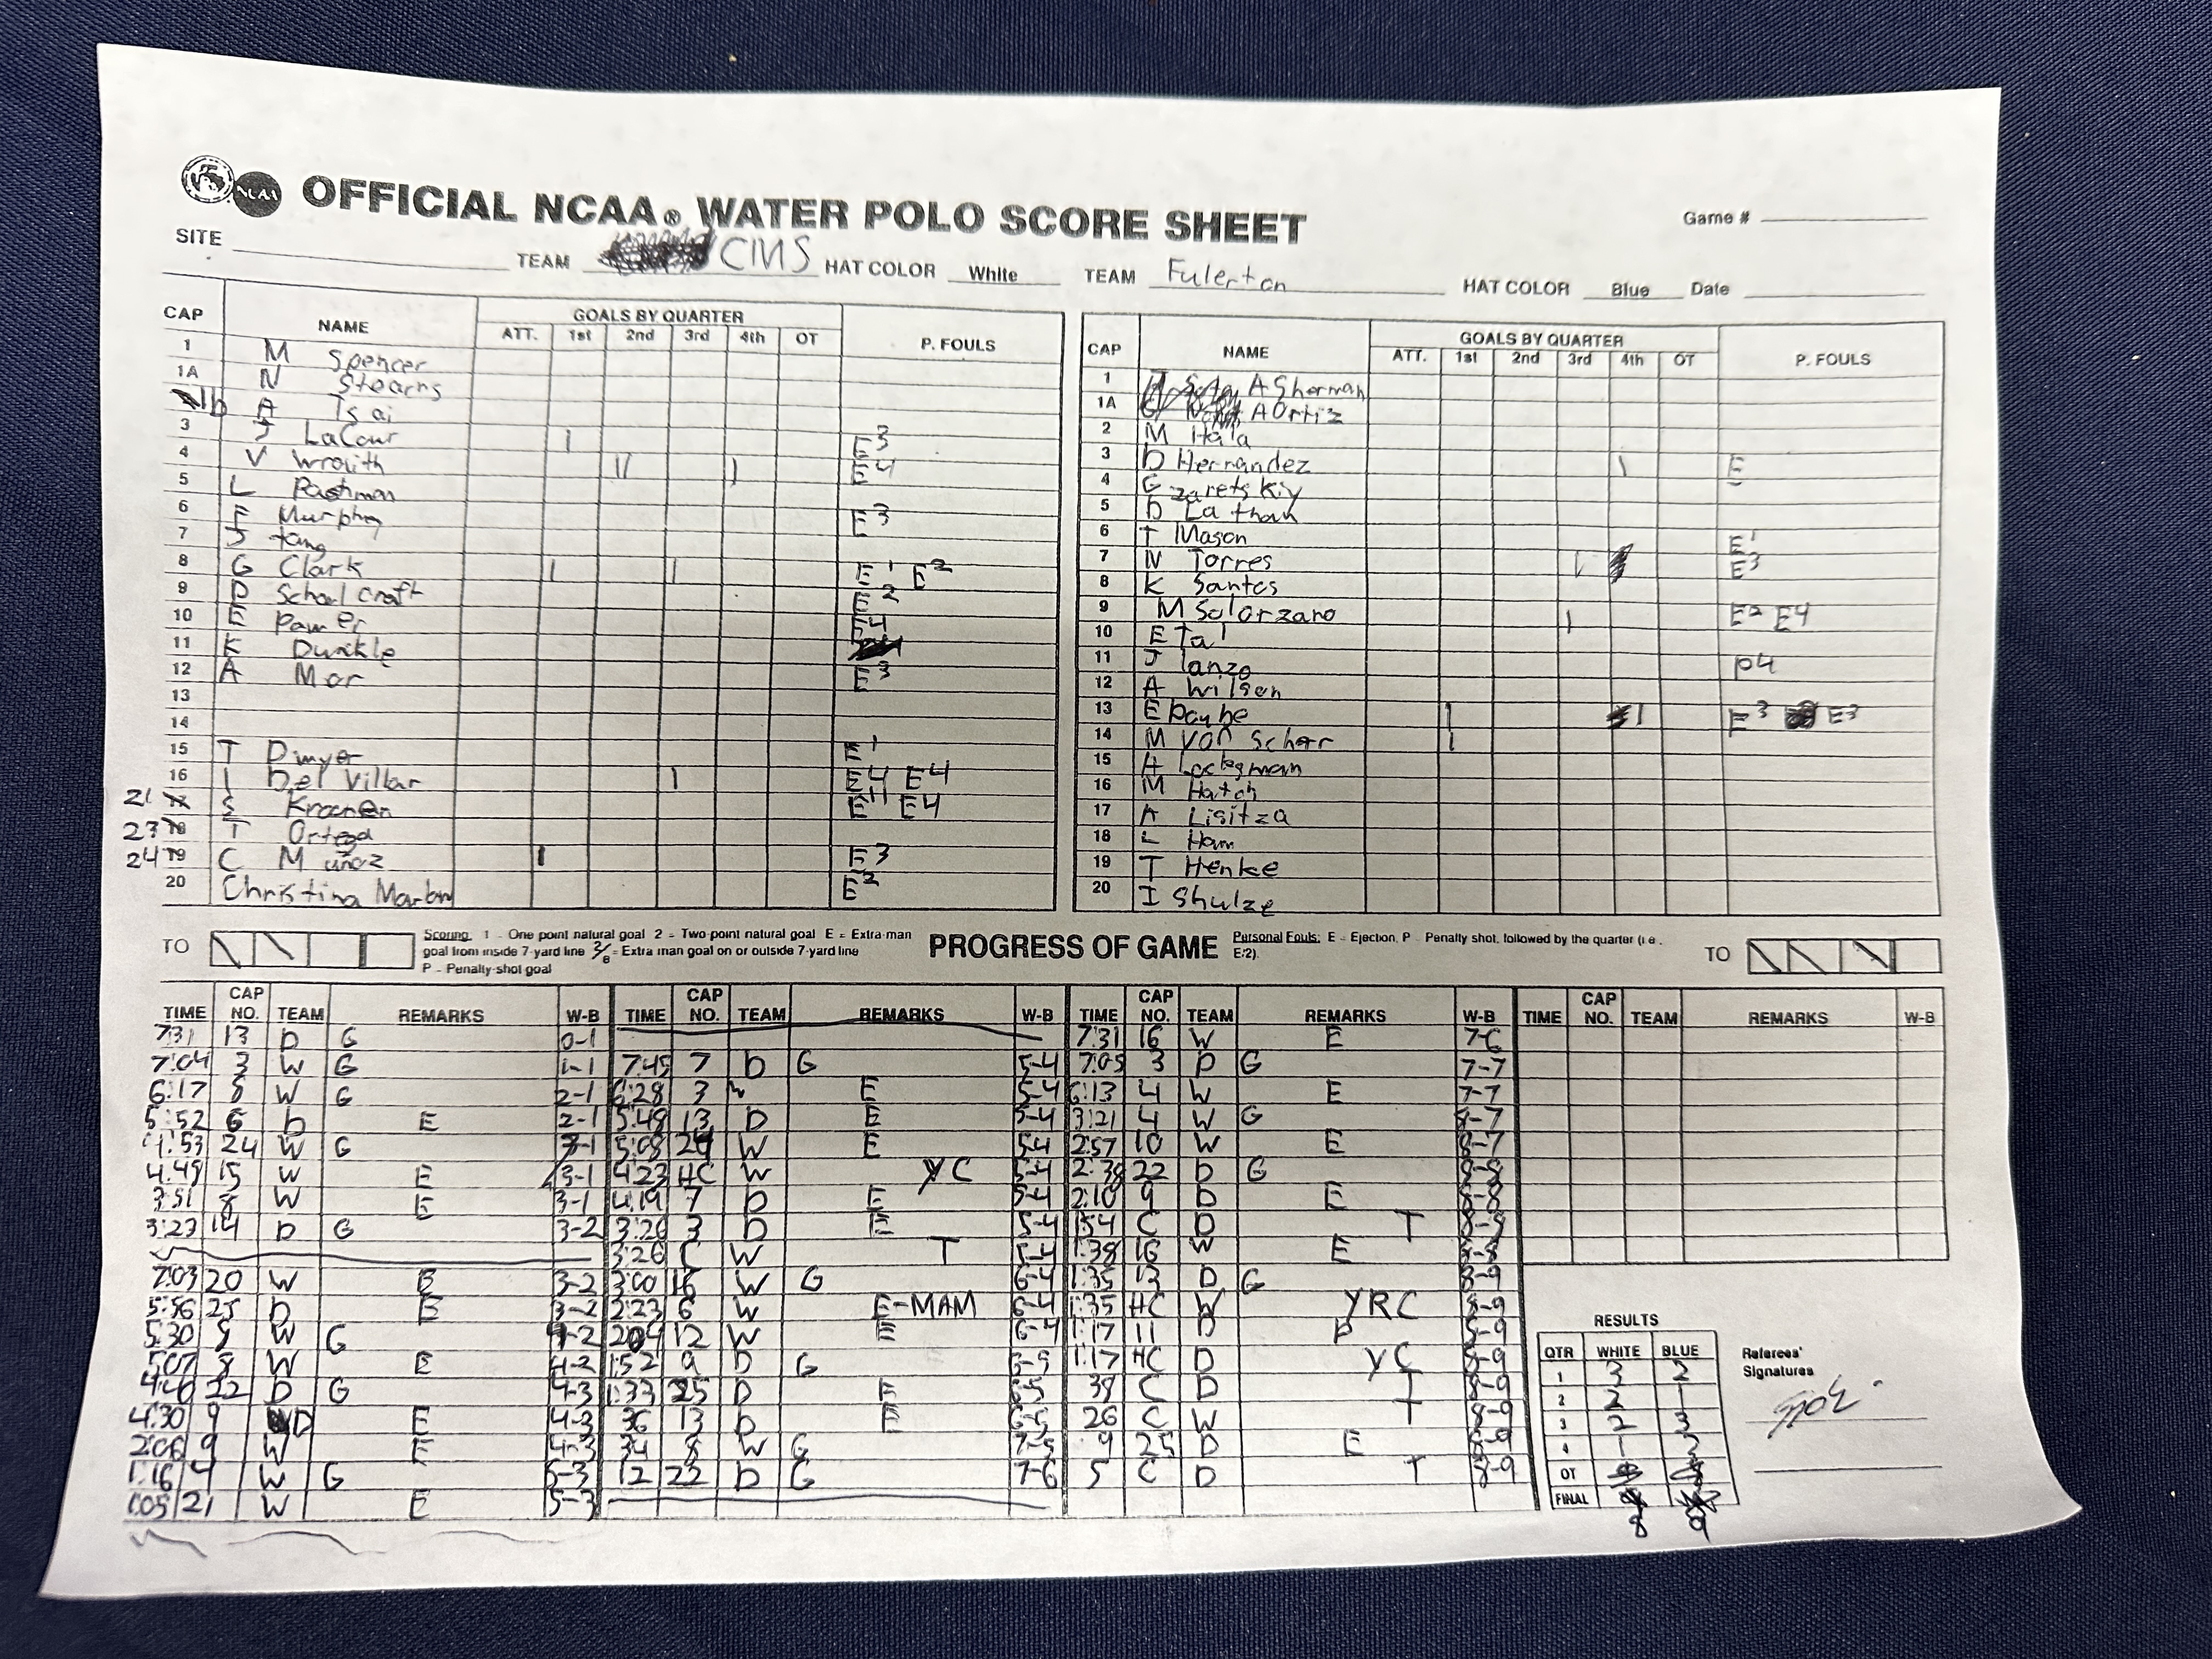 NCAA OFFICIAL NCAA® WATER POLO SCORE SHEET
Game #
SITE TEAM CMS HAT COLOR White TEAM Fulerton HAT COLOR Blue Date
CAP NAME GOALS BY QUARTER P. FOULS
ATT. 1st 2nd 3rd 4th OT
1 M Spencer
1A N Stearns
1b A Tsai
3 J LaCour 1 E3
4 V Wrouith 11 1 E4
5 L Pashman
6 F Murphy E3
7 J tang
8 G Clark 1 1 E1 E2
9 D School craft E2
10 E Pawer E4
11 K Dunkle
12 A Mar E3
13
14
15 T Dwyer E1
16 I Del Villar 1 E4 E4
21 S Kroonen E4
27 T Ortega
24 19 C Muñoz 1 E3
20 Christina Marlon E2
CAP NAME GOALS BY QUARTER P. FOULS
ATT. 1st 2nd 3rd 4th OT
1 A Sherman
1A A Ortiz
2 M Hala
3 D Hernandez 1 E
4 G zaretskiy
5 D Latham
6 T Mason E1
7 N Torres 1 E3
8 K Santos
9 M Solorzano 1 E2 E4
10 E Tal
11 J lanzo P4
12 A Wilson
13 E 1 1 E3 E3
14 M von Scherr 1
15 H
16 M Hatch
17 A Lisitza
18 L Ham
19 T Henke
20 I Shulze
TO
Scoring: 1 – One point natural goal 2 – Two-point natural goal E = Extra-man
goal from inside 7-yard line = Extra man goal on or outside 7-yard line
P – Penalty-shot goal
PROGRESS OF GAME
Personal Fouls: E – Ejection, P – Penalty shot, followed by the quarter (i.e.
E:2).
TO
TIME CAP NO. TEAM REMARKS W-B
7:31 13 D G 0-1
7:04 3 W G 1-1
6:17 8 W G 2-1
5:52 6 D E 2-1
4:53 24 W G 3-1
4:49 15 W E 3-1
3:51 8 W E 3-1
3:23 14 D G 3-2
7:03 20 W E 3-2
5:56 25 D E 3-2
5:30 W G 4-2
5:07 8 W E 4-2
4:40 22 D G 4-3
4:30 9 D E 4-3
2:06 9 W E 4-3
1:16 4 W G 5-3
1:05 21 W E 5-3
TIME CAP NO. TEAM REMARKS W-B
7:45 7 D G 5-4
6:28 3 W E 5-4
5:48 13 D E 5-4
5:08 24 W E 5-4
4:23 HC W YC 5-4
4:19 7 D E 5-4
3:26 3 D E 5-4
3:26 C W T 5-4
3:00 16 W G 6-4
2:23 6 W E-MAM 6-4
2:04 12 W E 6-4
1:52 9 D G 6-5
1:33 25 D E 6-5
36 13 D E 6-5
34 8 W G 7-5
12 22 D G 7-6
TIME CAP NO. TEAM REMARKS W-B
7:31 16 W E 7-6
7:05 3 D G 7-7
6:13 4 W E 7-7
3:21 4 W G 8-7
2:57 10 W E 8-7
2:38 22 D G 8-8
2:10 9 D E 8-8
1:54 C D T 8-8
1:38 16 W E 8-8
1:35 13 D G 8-9
1:35 HC W YRC 8-9
1:17 11 D P 8-9
1:17 HC D YC 8-9
38 C D T 8-9
26 C W T 8-9
9 25 D E 8-9
5 C D T 8-9
TIME CAP NO. TEAM REMARKS W-B
RESULTS
QTR WHITE BLUE
1 3 2
2 2 1
3 2 3
4 1 3
OT
FINAL
8 9
Referees'
Signatures